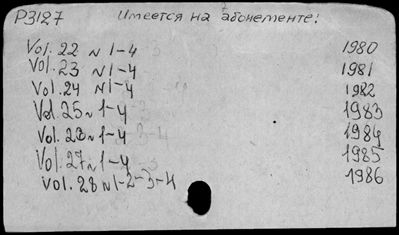 P3127 Имеется на абонементе!
Vol. 22 N 1-4 1980
Vol. 23 N 1-4 1981
Vol. 24 N 1-4 1982
Vol. 25 N 1-4 1983
Vol. 23 N 1-4 1984
Vol. 27 N 1-4 1985
Vol. 28 N 1-2-3-4 1986